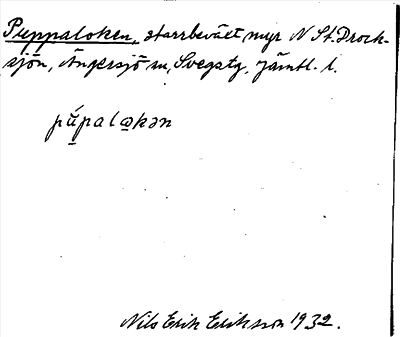 Puppaloken, starrbeväxt myr N St. Drock-
sjön, Ängersjö sn, Svegstg, Jämtl. l.
pṹpalo̲kən
Nils Erik Eriksson 1932.